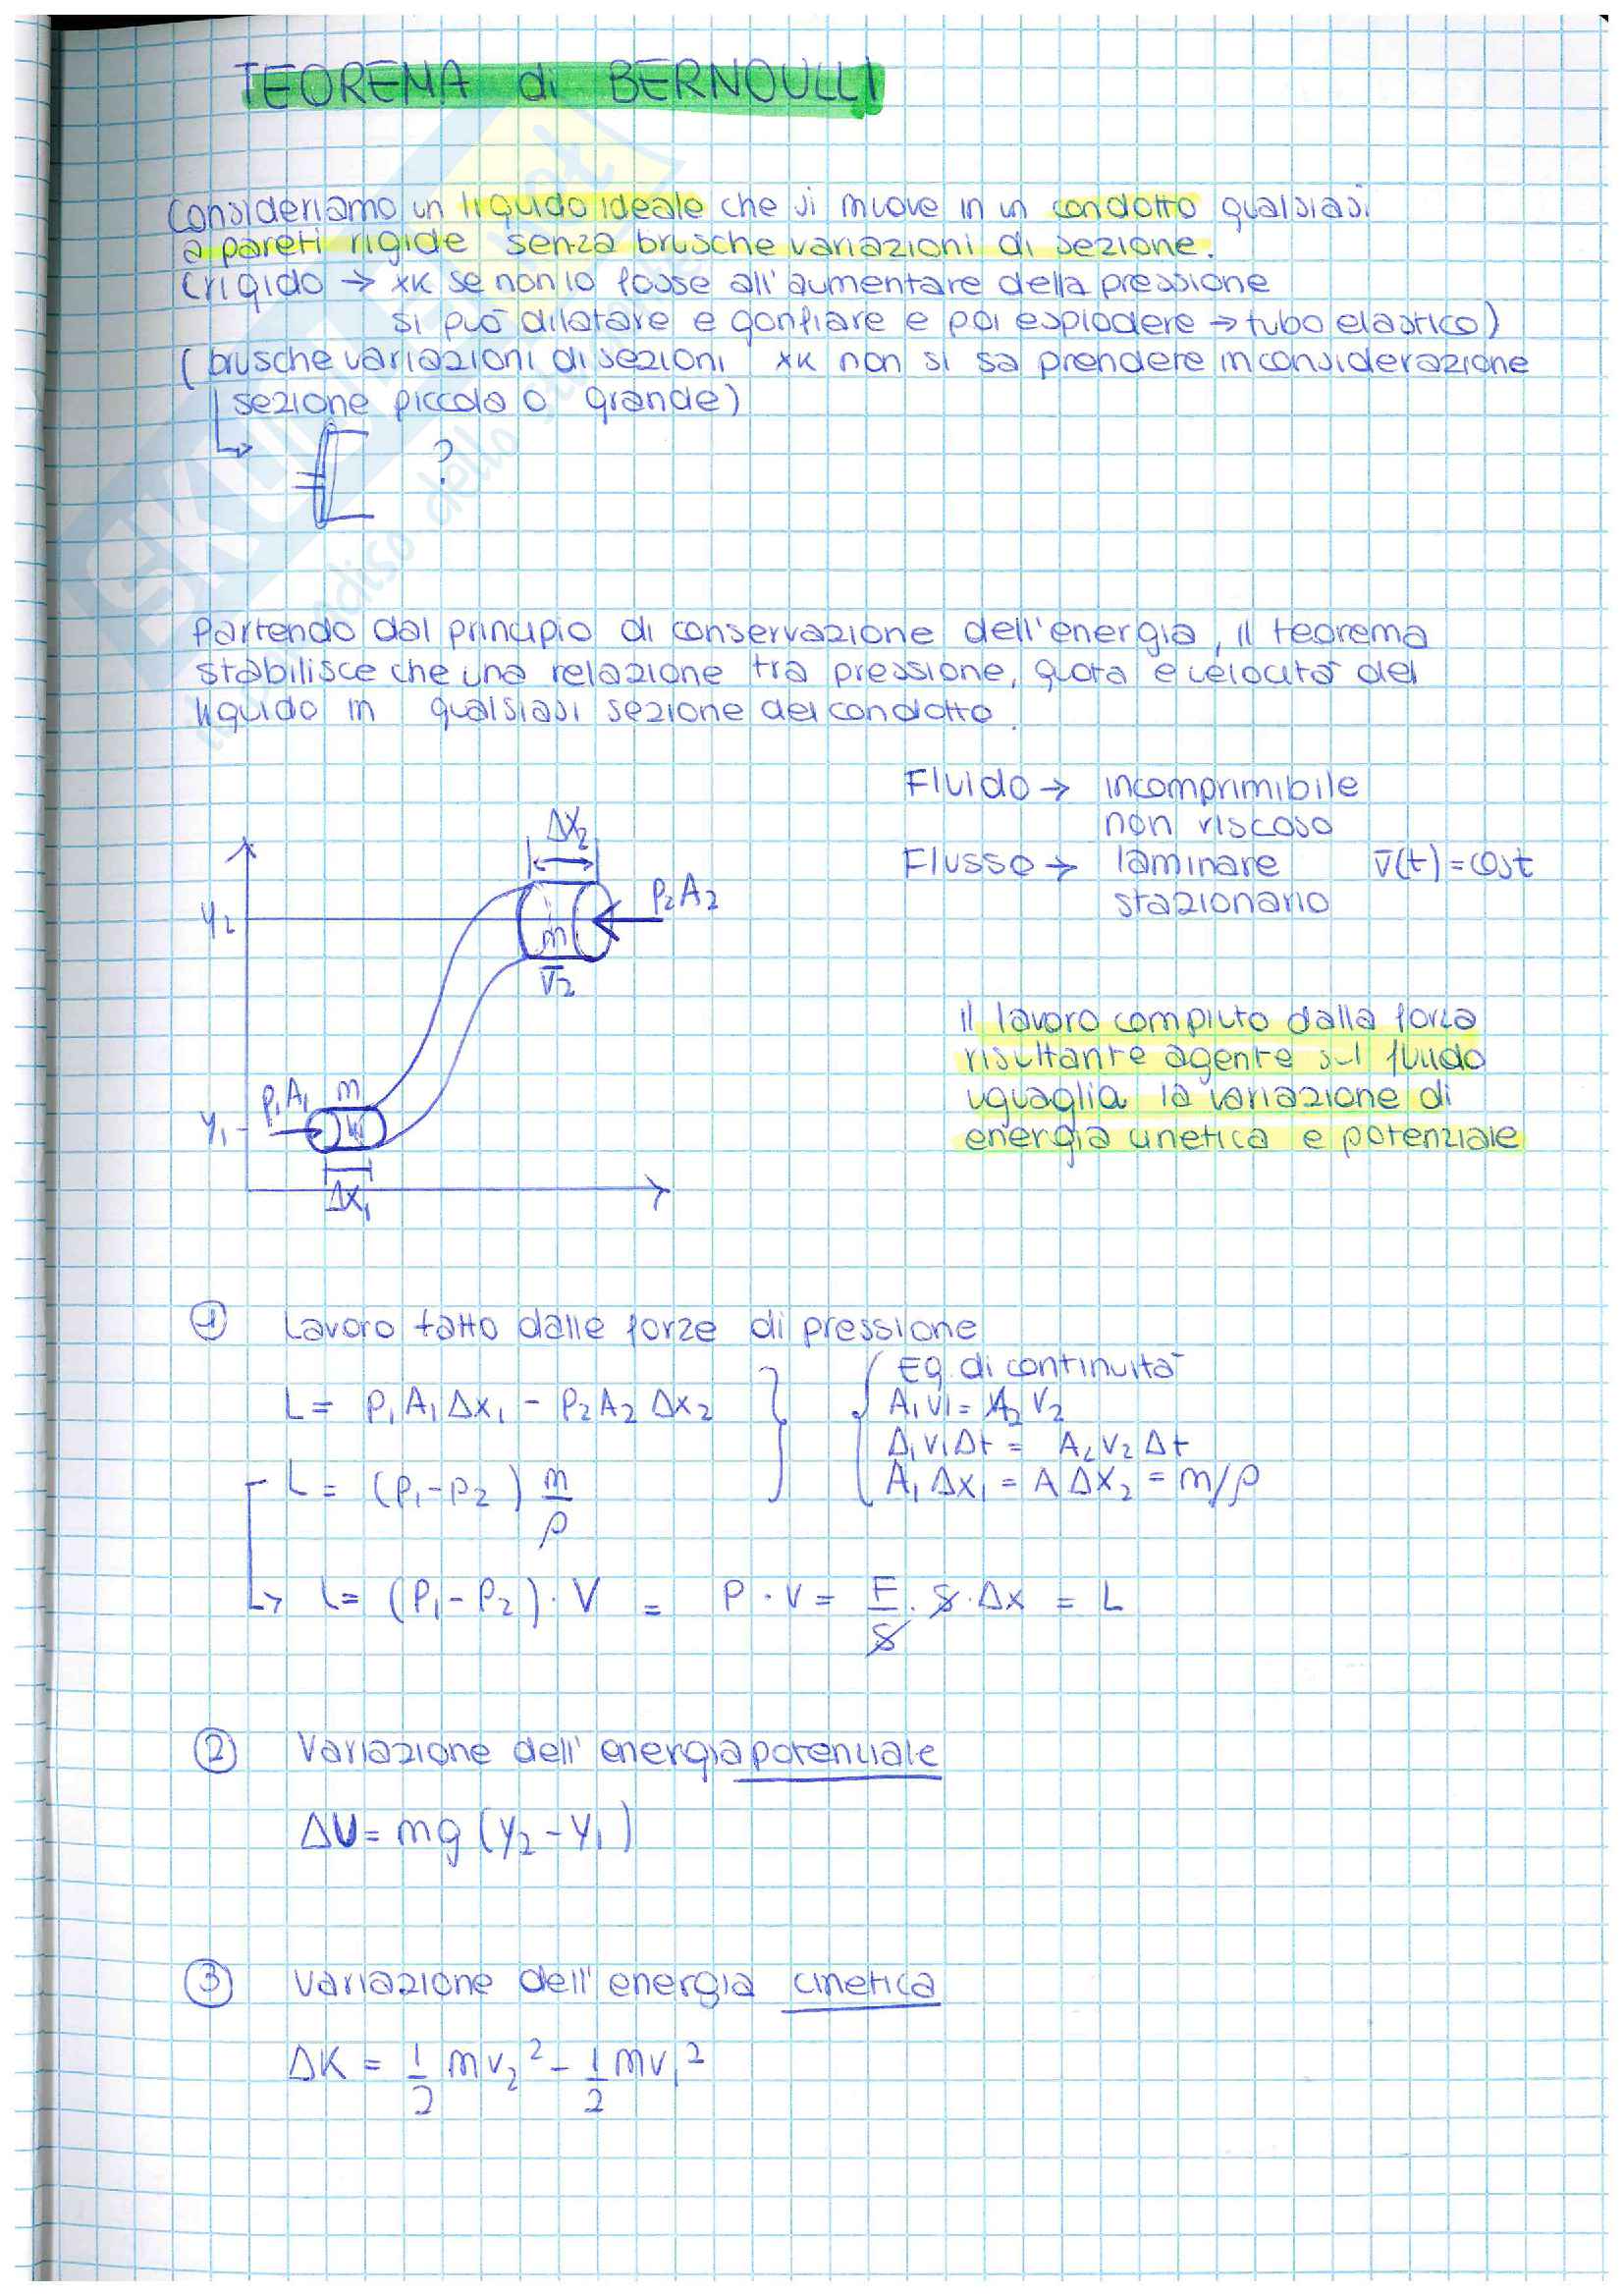 TEOREMA di BERNOULLI
Consideriamo un liquido ideale che si muove in un condotto qualsiasi
a pareti rigide senza brusche variazioni di sezione.
(rigido → xk se non lo fosse all'aumentare della pressione
si può dilatare e gonfiare e poi esplodere → tubo elastico)
(brusche variazioni di sezioni xk non si sa prendere in considerazione
sezione piccola o grande)
?
Partendo dal principio di conservazione dell'energia, il teorema
stabilisce che una relazione tra pressione, quota e velocità del
liquido in qualsiasi sezione del condotto.
Fluido → incomprimibile
non viscoso
Flusso → laminare v̄(t) = cost
stazionario
Δx₂
y₂
p₂A₂
m
v̄₂
p₁A₁ m
y₁
Δx₁
Il lavoro compiuto dalla forza
risultante agente sul fluido
uguaglia la variazione di
energia cinetica e potenziale
① Lavoro fatto dalle forze di pressione
L = p₁A₁Δx₁ - p₂A₂Δx₂
L = (p₁-p₂) m/ρ
Eq. di continuità
A₁v₁ = A₂v₂
A₁v₁Δt = A₂v₂Δt
A₁Δx₁ = AΔx₂ = m/ρ
L = (P₁-P₂)·V = P·V = F/S·S·Δx = L
② Variazione dell'energia potenziale
ΔU = mg(y₂-y₁)
③ Variazione dell'energia cinetica
ΔK = 1/2 mv₂² - 1/2 mv₁²